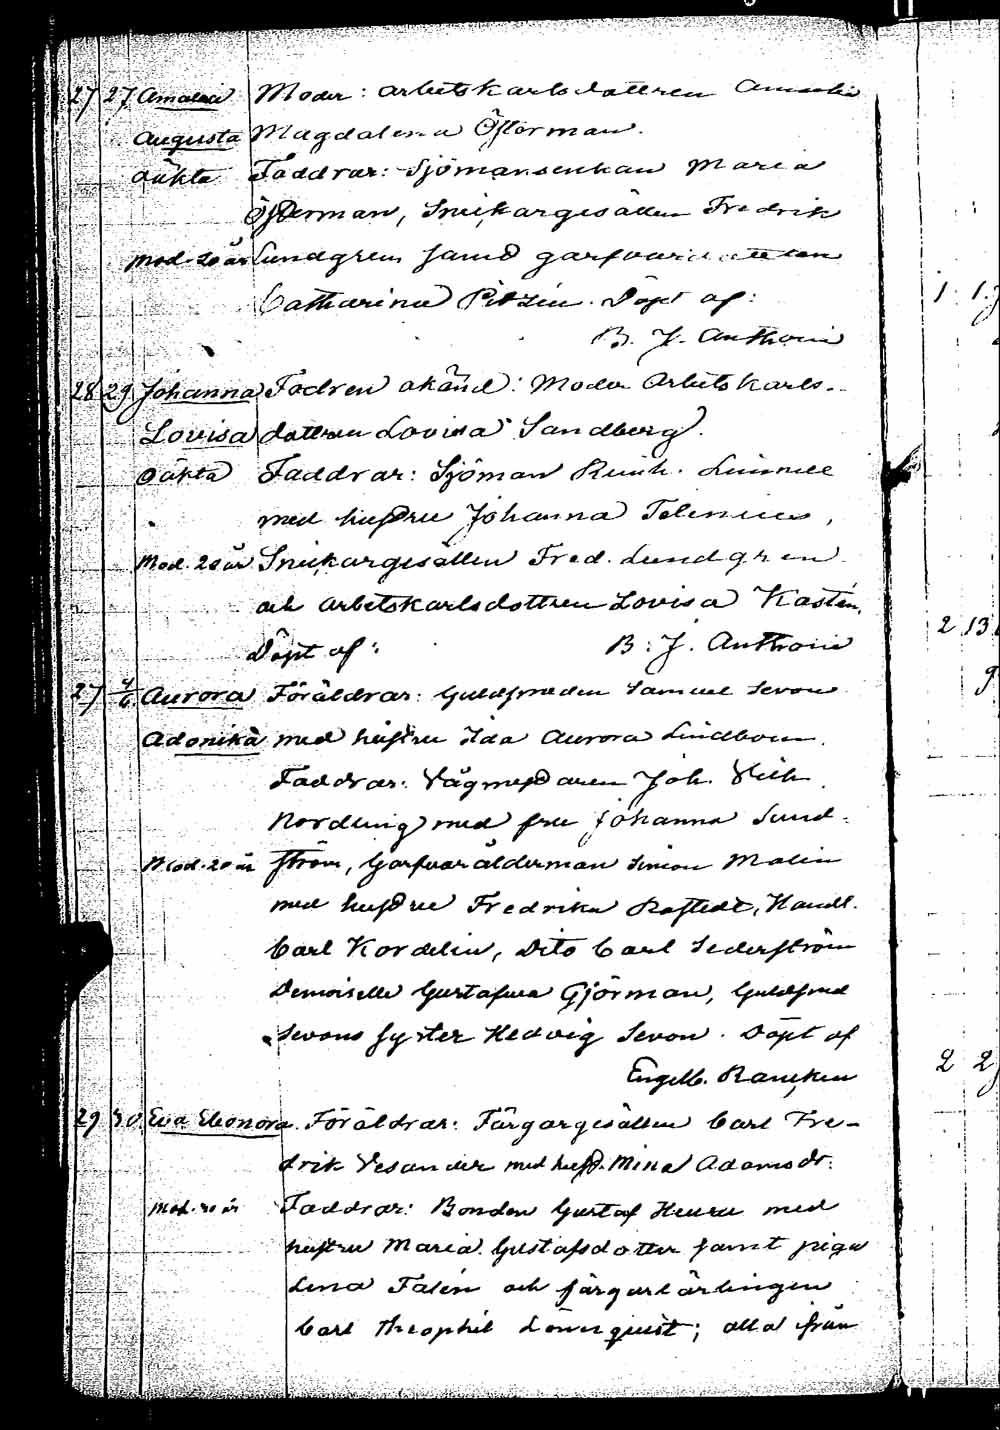 27 27 Amalia Moder: arbetskarlsdottren Amalia
Augusta Magdalena Österman.
oäkta Faddrar: Sjömansenkan Maria
Österman, Snickargesällen Fredrik
Mod. 20 år Lundgren samt garfvare
Catharina Döpt af:
B. J. Anthoni
28 29 Johanna Fadren okänd: Moder Arbetskarls-
Lovisa dottren Lovisa Sandberg.
oäkta Faddrar: Sjöman
med hustru Johanna Telenius,
Mod. 20 år Snickargesällen Fred. Lundgren
och arbetskarlsdottren Lovisa Kastén,
Döpt af: B. J. Anthoni
27 4/6 Aurora Föräldrar: Guldsmeden Samuel Sevon
Adonika med hustru Ida Aurora Lindbom.
Faddrar: Vågmästaren Joh. Vilh.
Nordling med fru Johanna Sund-
Mod. 20 år ström, Garfvarålderman Simon Malin
med hustru Fredrika Handl.
Carl Kordelin, Dito Carl Sederström
Demoiselle Gustafva Gjörman, Guldsmed
Sevons syster Hedvig Sevon. Döpt af
Engelb. Rancken
29 30 Eva Eleonora. Föräldrar: Färgargesällen Carl Fre-
drik Vesander med hust. Mina Adamsdr:
Mod. 20 år Faddrar: Bonden Gustaf Heuru med
hustru Maria Gustafsdotter samt piga
Lena Falén och färgarlärlingen
Carl Theophil Lönnquist; alla ifrån
1 1
2 13
9
2 2